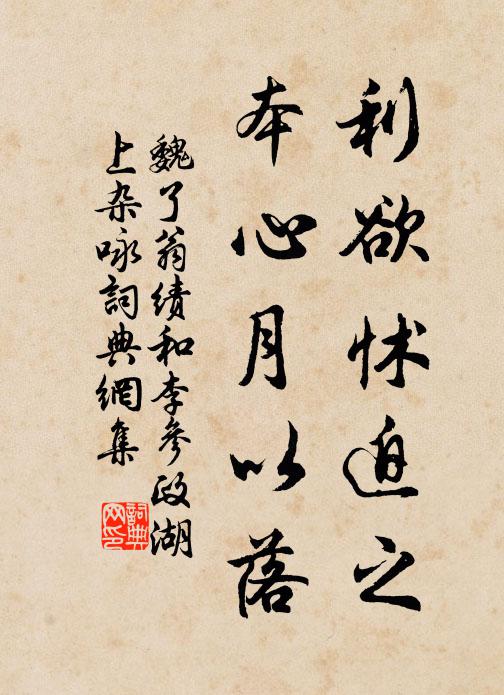 利欲怵迫之
本心月以落
魏了翁績和李參政湖
上杂咏詞典網集
詞典网印